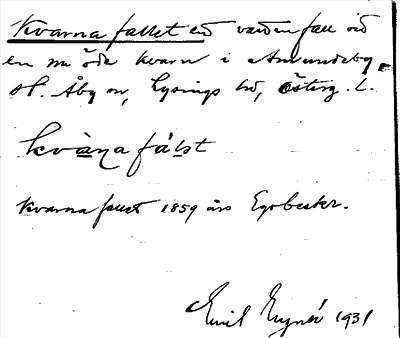 Kvarnafallet ett vattenfall vid
en nu öde kvarn i Amundeby
sk. Åby sn, Lysings hd, Österg. L.
kvàṇafáḷst
Kvarnafallet 1859 års Egobeskr.
Emil 1931